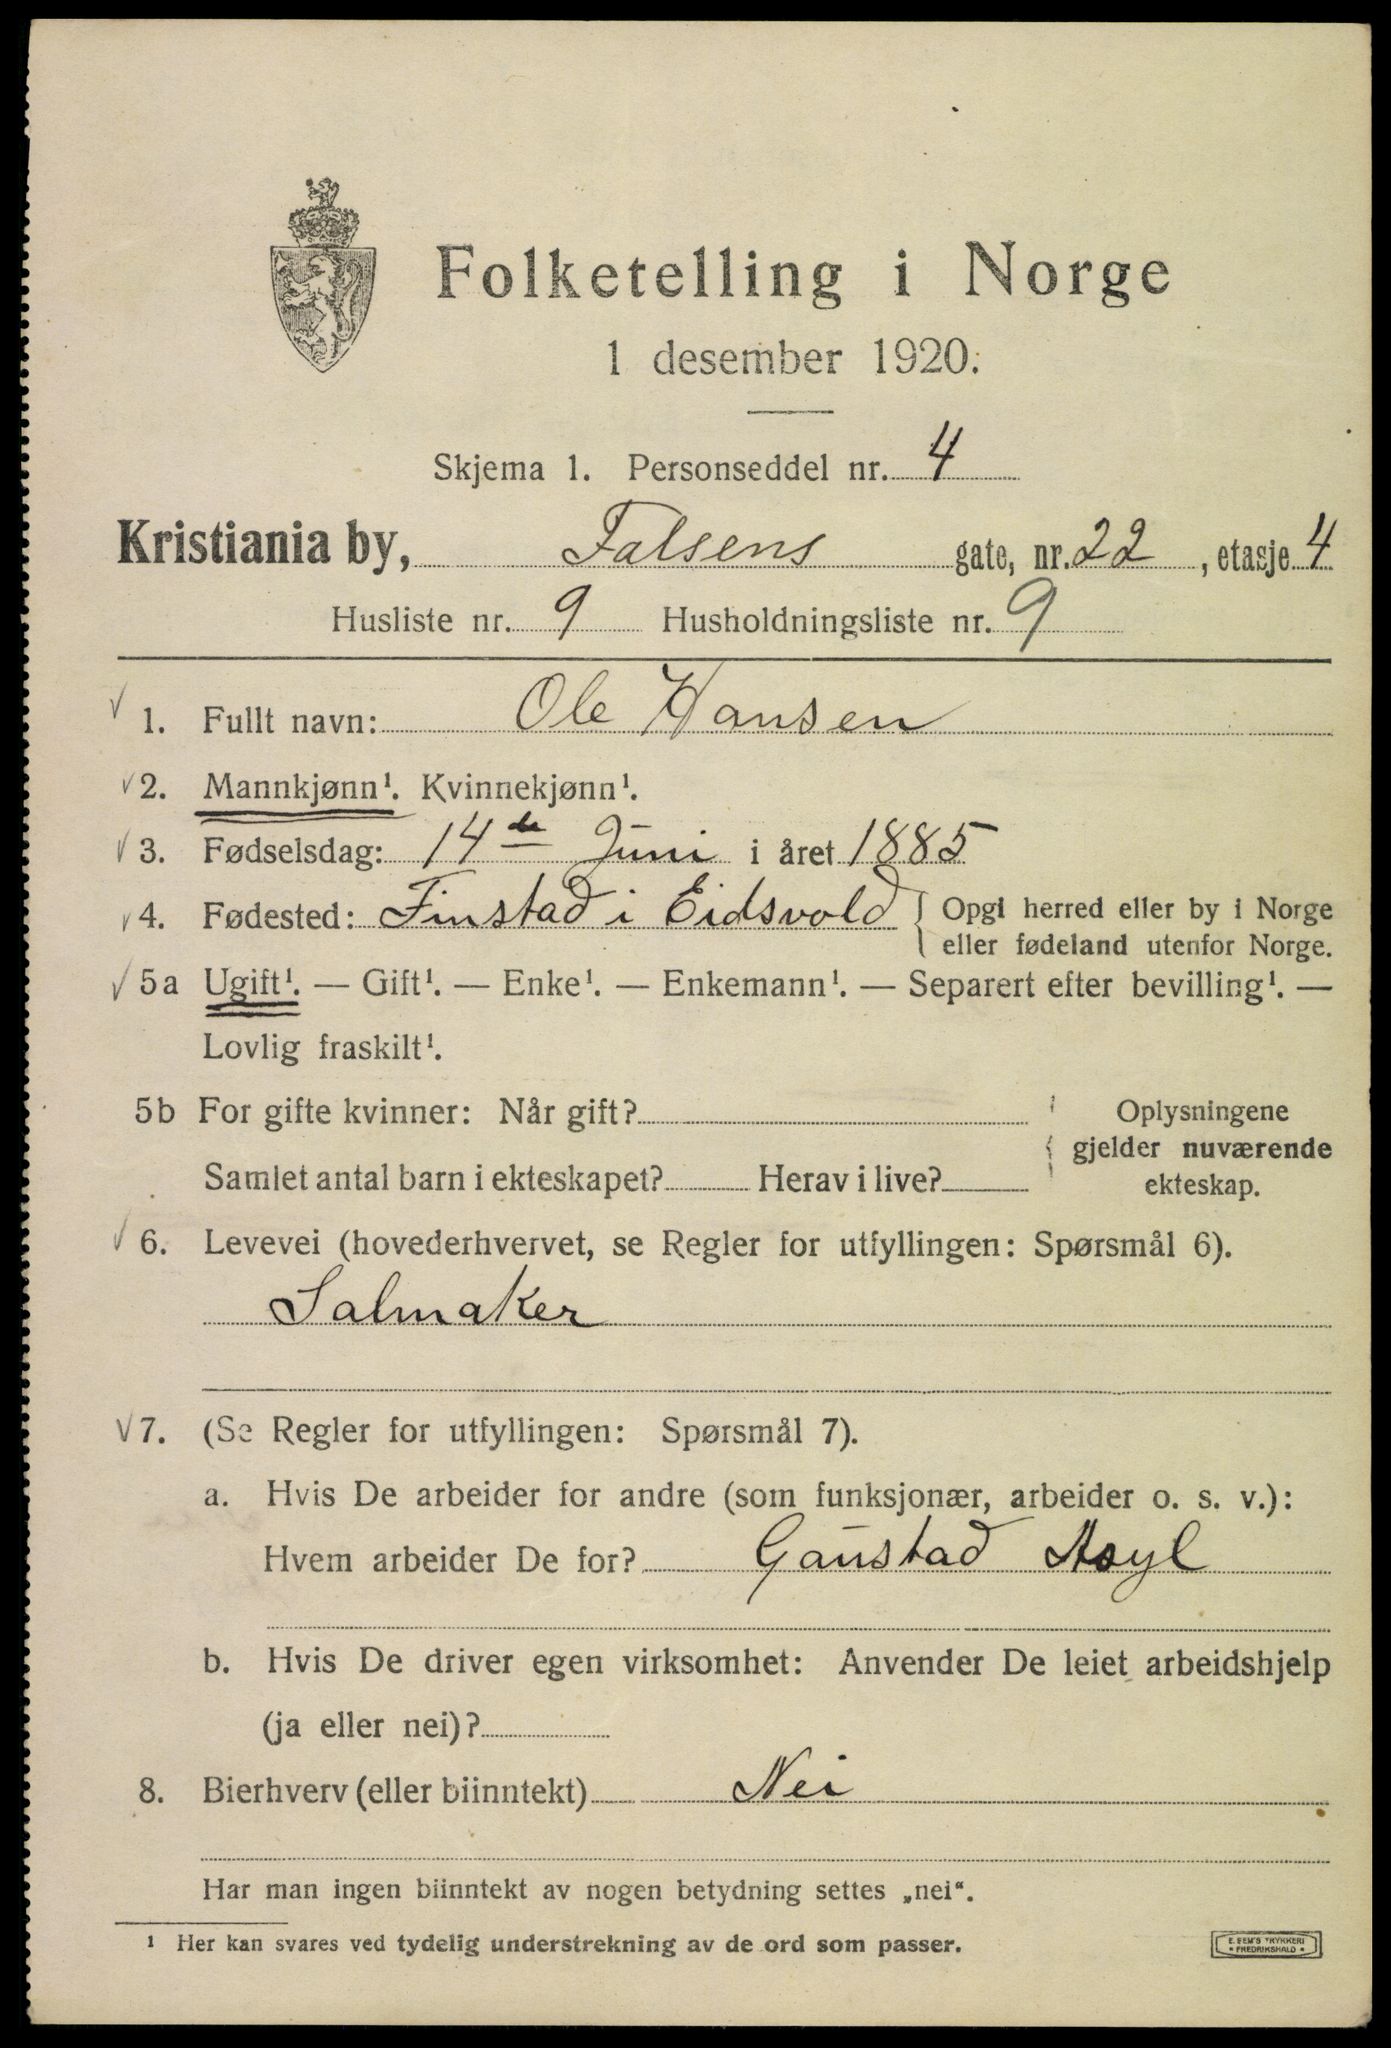 Folketelling i Norge
1 desember 1920.
Skjema 1. Personseddel nr. 4
Kristiania by, Falsens gate, nr. 22, etasje 4
Husliste nr. 9 Husholdningsliste nr. 9
√ 1. Fullt navn: Ole Hansen
√ 2. Mannkjønn¹. Kvinnekjønn¹.
√ 3. Fødselsdag: 14de Juni i året 1885
√ 4. Fødested: Finstad i Eidsvold { Opgi herred eller by i Norge
eller fødeland utenfor Norge.
√ 5a Ugift¹. — Gift¹. — Enke¹. — Enkemann¹. — Separert efter bevilling¹. —
Lovlig fraskilt¹.
5b For gifte kvinner: Når gift? Oplysningene
gjelder nuværende
Samlet antal barn i ekteskapet? Herav i live? ekteskap.
√ 6. Levevei (hovederhvervet, se Regler for utfyllingen: Spørsmål 6).
Salmaker
√ 7. (Se Regler for utfyllingen: Spørsmål 7).
a. Hvis De arbeider for andre (som funksjonær, arbeider o. s. v.):
Hvem arbeider De for? Gaustad Asyl
b. Hvis De driver egen virksomhet: Anvender De leiet arbeidshjelp
(ja eller nei)?
8. Bierhverv (eller biinntekt) Nei
Har man ingen biinntekt av nogen betydning settes „nei“.
¹ Her kan svares ved tydelig understrekning av de ord som passer.
E. SEM'S TRYKKERI
• FREDRIKSHALD •